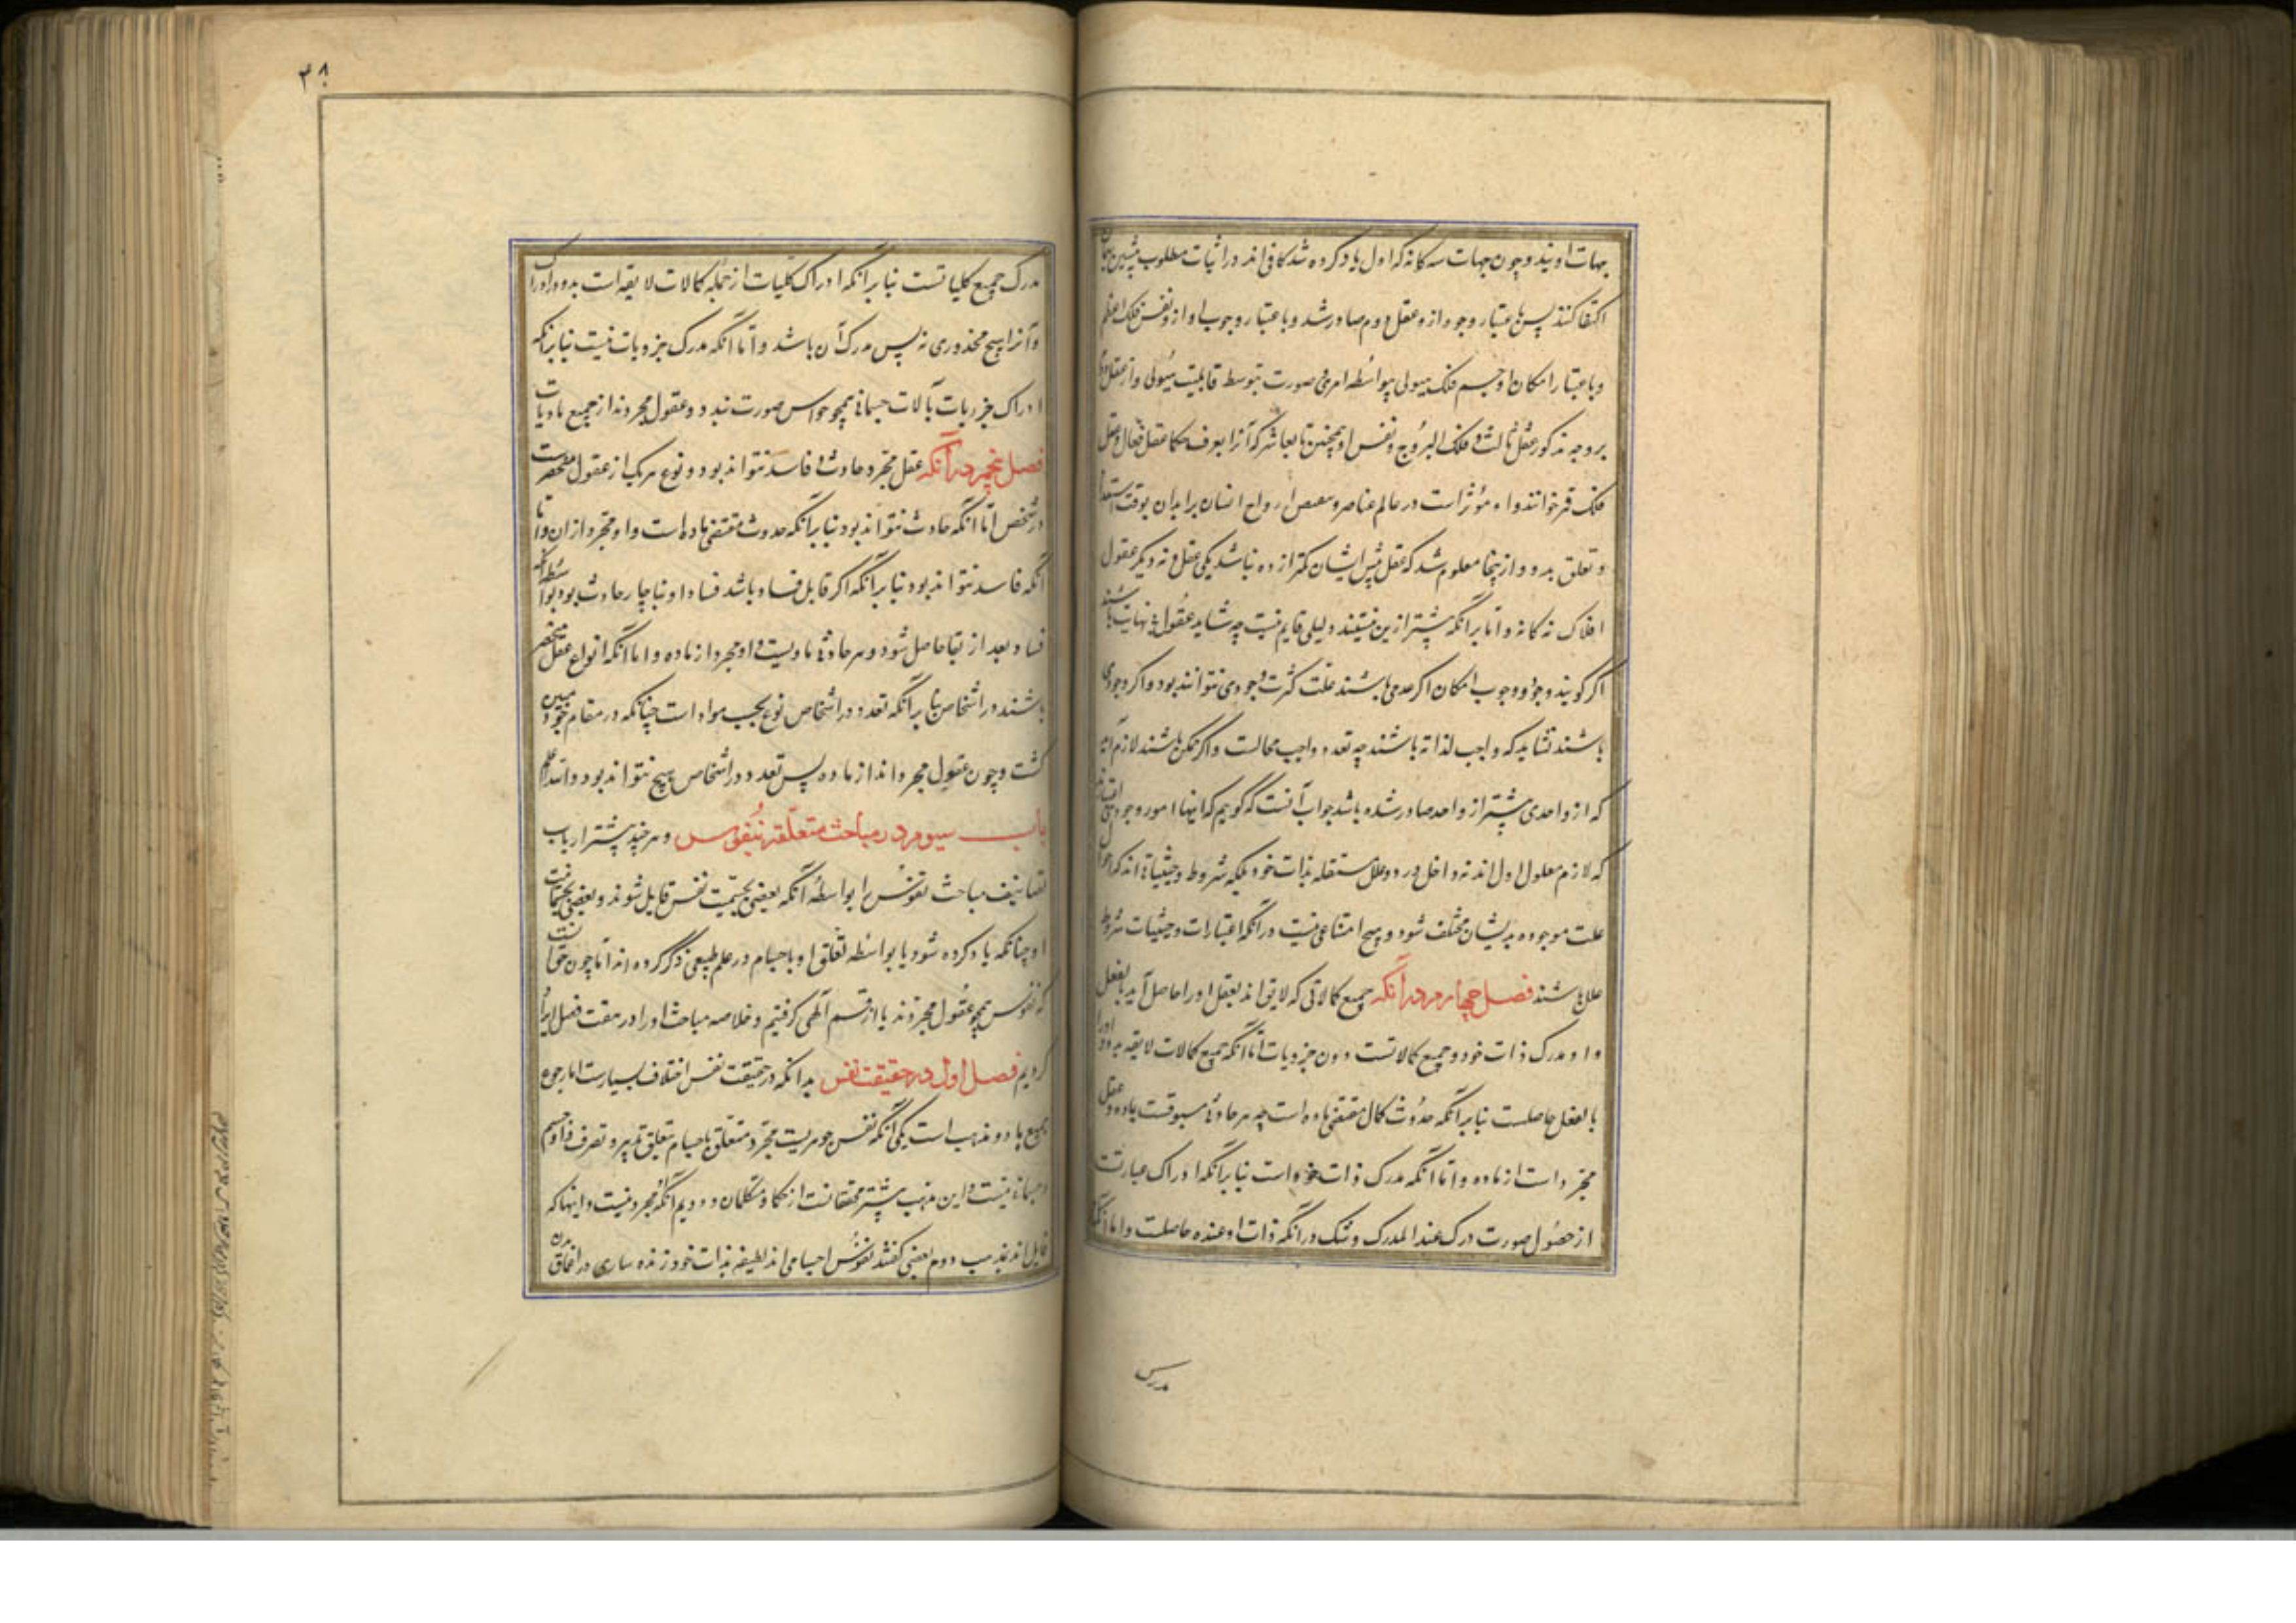 جهات او نیند و چون جهات سه کانه که اول یاد کرده شد کافی اند در اثبات مطلوب پیشین بهمان
اکتفا کنند پس باعتبار وجود ازو عقل دوم صادر شد و باعتبار وجوب او ازو نفس فلک اعظم
و باعتبار امکان او جسم فلک هیولی بواسطه امری صورت بتوسط قابلیت هیولی و از عقل دوم
بر وجه مذکور عقل ثالث و فلک البروج و نفس او همچنین تا بعاشر که آنرا بعرف حکما عقل فعال و عقل
فلک قمر خوانند و او مؤثر است در عالم عناصر و مفیض ارواح انسان بر ابدان بوقت استعداد
و تعلق بدو و از ینجا معلوم شد که عقل پیش ایشان کمتر از ده نباشد یکی عقل و نه دیکر عقول
افلاک نه کانه و اما بر آنکه بیشتر ازین نیستند دلیلی قایم نیست چه شاید عقول بی نهایت باشند
اگر کویند وجود و وجوب و امکان اگر عدمی باشند علت کثرت وجودی نتوانند بود و اکر وجودی
باشند نشاید که واجب لذاته باشند چه تعدد واجب محالست و اکر ممکن باشند لازم آید
که از واحدی بیشتر از واحد صادر شده باشد جواب آنست که کوییم که اینها امور وجودی
که لازم معلول اول اند نه داخل درو و علل مستقله بذات خود بلکه شروط و حیثیات اند که احوال
علت موجوده بدیشان مختلف شود و هیچ امتناعی نیست در آنکه اعتبارات و حیثیات شروط
علل باشند فصل چهارم در آنکه جمیع کمالاتی که لایق اند بعقل او را حاصل آید بالفعل
و او مدرک ذات خود و جمیع کمالاتست دون جزویات اما آنکه جمیع کمالات لایقه بدو او را
بالفعل حاصلست بنا بر آنکه حدوث کمال مقتضی ماده است چه هر حادثی مسبوقست بماده و عقل
مجرد است از ماده و اما آنکه مدرک ذات خود است بنا بر آنکه ادراک عبارتست
از حصول صورت درک عند المدرک و شک در آنکه ذات او عنده حاصلست و اما آنکه
مدرک
۳۸
مدرک جمیع کلیاتست بنا بر آنکه ادراک کلیات از جمله کمالات لایقه است بدو و ادراک
و آنرا هیچ محذوری نه پس مدرک آن باشد و اما آنکه مدرک جزویات نیست بنا بر آنکه
ادراک جزویات بآلات جسمانی همچو حواس صورت بندد و عقول مجردند از جمیع مادیات
فصل پنجم در آنکه عقل مجرد حادث و فاسد نتواند بود و نوع هر یک از عقول منحصرست
در شخص اما آنکه حادث نتواند بود بنا بر آنکه حدوث مقتضی ماده است و او مجرد از ان و اما
آنکه فاسد نتواند بود بنا بر آنکه اگر قابل فساد باشد فساد او بناچار حادث بود بواسطه آنکه
فساد بعد از بقا حاصل شود و هر حادثی مادیست و او مجرد از ماده و اما آنکه انواع عقل منحصر
باشند در اشخاص بنا بر آنکه تعدد در اشخاص نوع بحسب مواد است چنانکه در مقام خود مبین
کشت و چون عقول مجرداند از ماده پس تعدد در اشخاص هیچ نتواند بود و الله اعلم
باب سیوم در مباحث متعلقه بنفوس و هر چند بیشتر ارباب
تصانیف مباحث نفوس را بواسطه آنکه بعضی بجسمیت نفس قایل شوند و بعضی بجسمانیت
او چنانکه یاد کرده شود یا بواسطه تعلق او باجسام در علم طبیعی ذکر کرده اند اما چون حق آنست
که نفوس همچو عقول مجردند ما از قسم الهی کرفتیم و خلاصه مباحث او را در هفت فصل ایراد
کردیم فصل اول در حقیقت نفس بدانکه در حقیقت نفس اختلاف بسیارست اما رجوع
جمیع با دو مذهب است یکی آنکه نفس جوهریست مجرد متعلق باجسام تعلق تدبیر و تصرف و او جسم
و جسمانی نیست و این مذهب بیشتر محققانست از حکما و متکلمان و دویم آنکه مجرد نیست و اینها که
قایل اند بمذهب دوم بعضی کفتند نفوس اجسامی اند لطیفه بذات خود زنده ساری در اعماق بدن